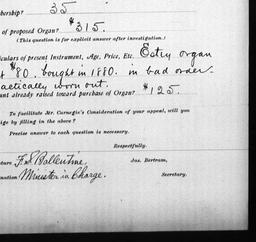 bership? 35
of proposed Organ? $315.
(This question is for explicit answer after investigation.)
culars of present Instrument, Age, Price, Etc. Estey organ
$80. bought in 1880. in bad order.
actically worn out.
unt already raised toward purchase of Organ? $125.
To facilitate Mr. Carnegie's Consideration of your appeal, will you
ige by filling in the above?
Precise answer to each question is necessary.
Respectfully,
ature F. W. Ballentine, Jas. Bertram,
nation Minister in Charge. Secretary.